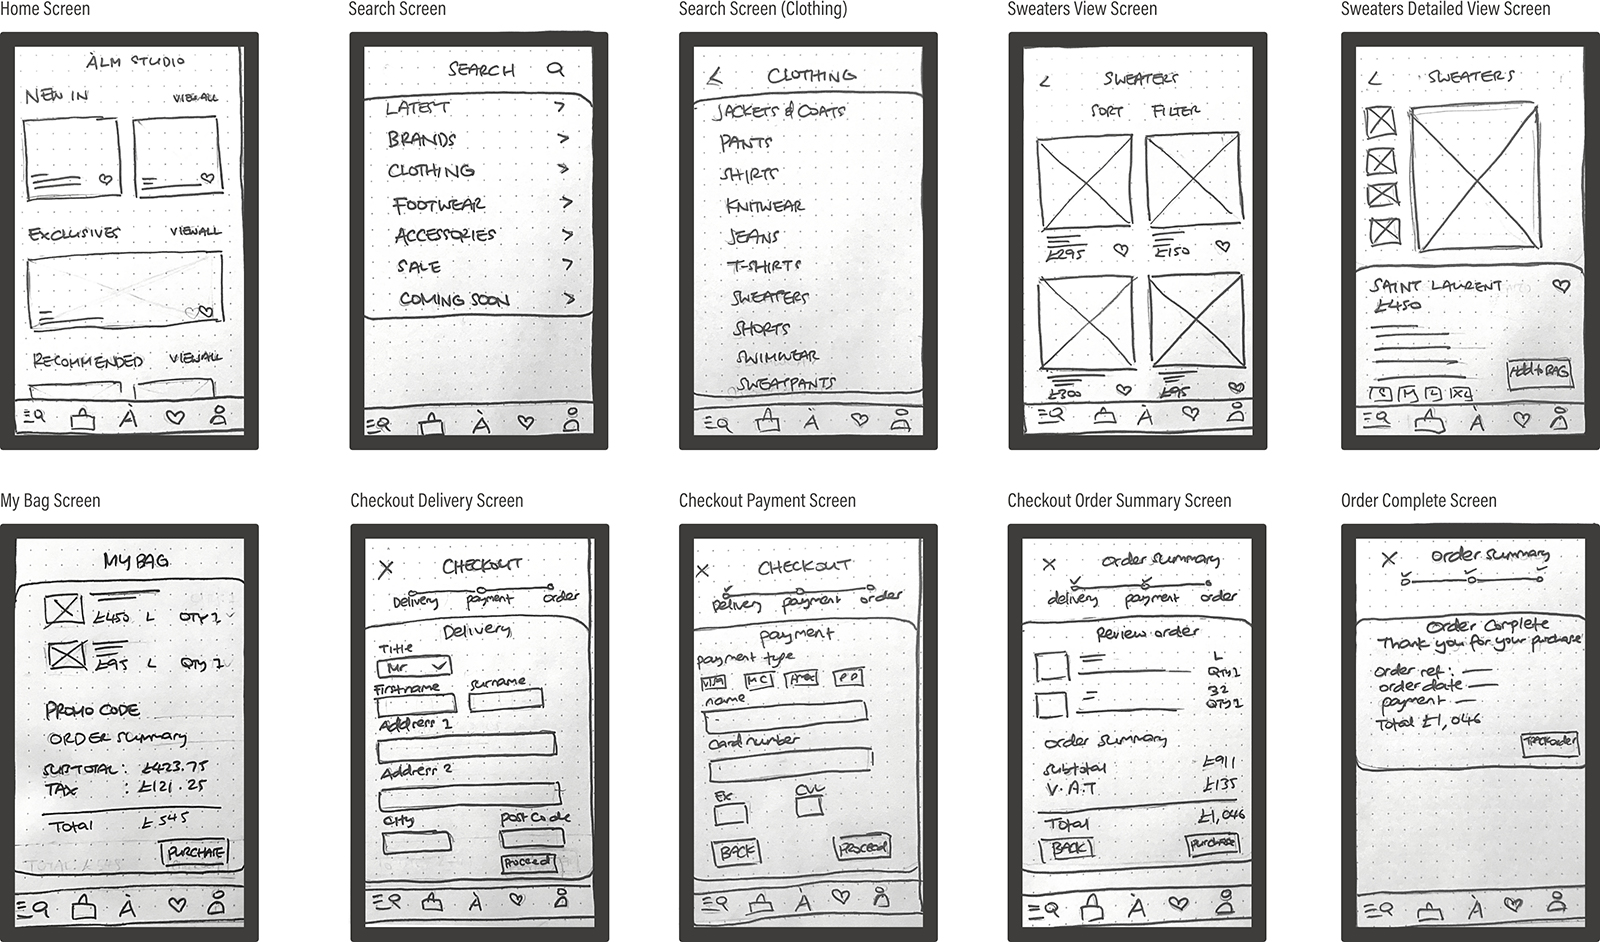 Home Screen
ÀLM STUDIO
NEW IN VIEW ALL
EXCLUSIVES VIEW ALL
RECOMMENDED VIEW ALL
À
Search Screen
SEARCH
LATEST >
BRANDS >
CLOTHING >
FOOTWEAR >
ACCESSORIES >
SALE >
COMING SOON >
À
Search Screen (Clothing)
< CLOTHING
JACKETS & COATS
PANTS
SHIRTS
KNITWEAR
JEANS
T-SHIRTS
SWEATERS
SHORTS
SWIMWEAR
SWEATPANTS
À
Sweaters View Screen
< SWEATERS
SORT FILTER
£295 £150
£300 £95
À
Sweaters Detailed View Screen
< SWEATERS
SAINT LAURENT
£450
Add to BAG
S M L XL
À
My Bag Screen
MY BAG
£450 L QTY 1
£95 L QTY 1
PROMO CODE
ORDER Summary
SUBTOTAL: £423.75
TAX : £121.25
Total £545
PURCHASE
À
Checkout Delivery Screen
X CHECKOUT
Delivery payment order
Delivery
Title
Mr
First name surname
Address 1
Address 2
City Post Code
Proceed
À
Checkout Payment Screen
X CHECKOUT
Delivery payment order
payment
payment type
VISA MC Amex PP
name
Card number
Ex CVV
BACK PROCEED
À
Checkout Order Summary Screen
X Order Summary
delivery payment order
Review order
L
QTY 1
32
QTY 1
Order summary
Subtotal £911
V.A.T £135
Total £1,046
BACK purchase
À
Order Complete Screen
X Order Summary
Order Complete
Thank you for your purchase
order ref:
order date
payment
Total £1,046
TRACK order
À